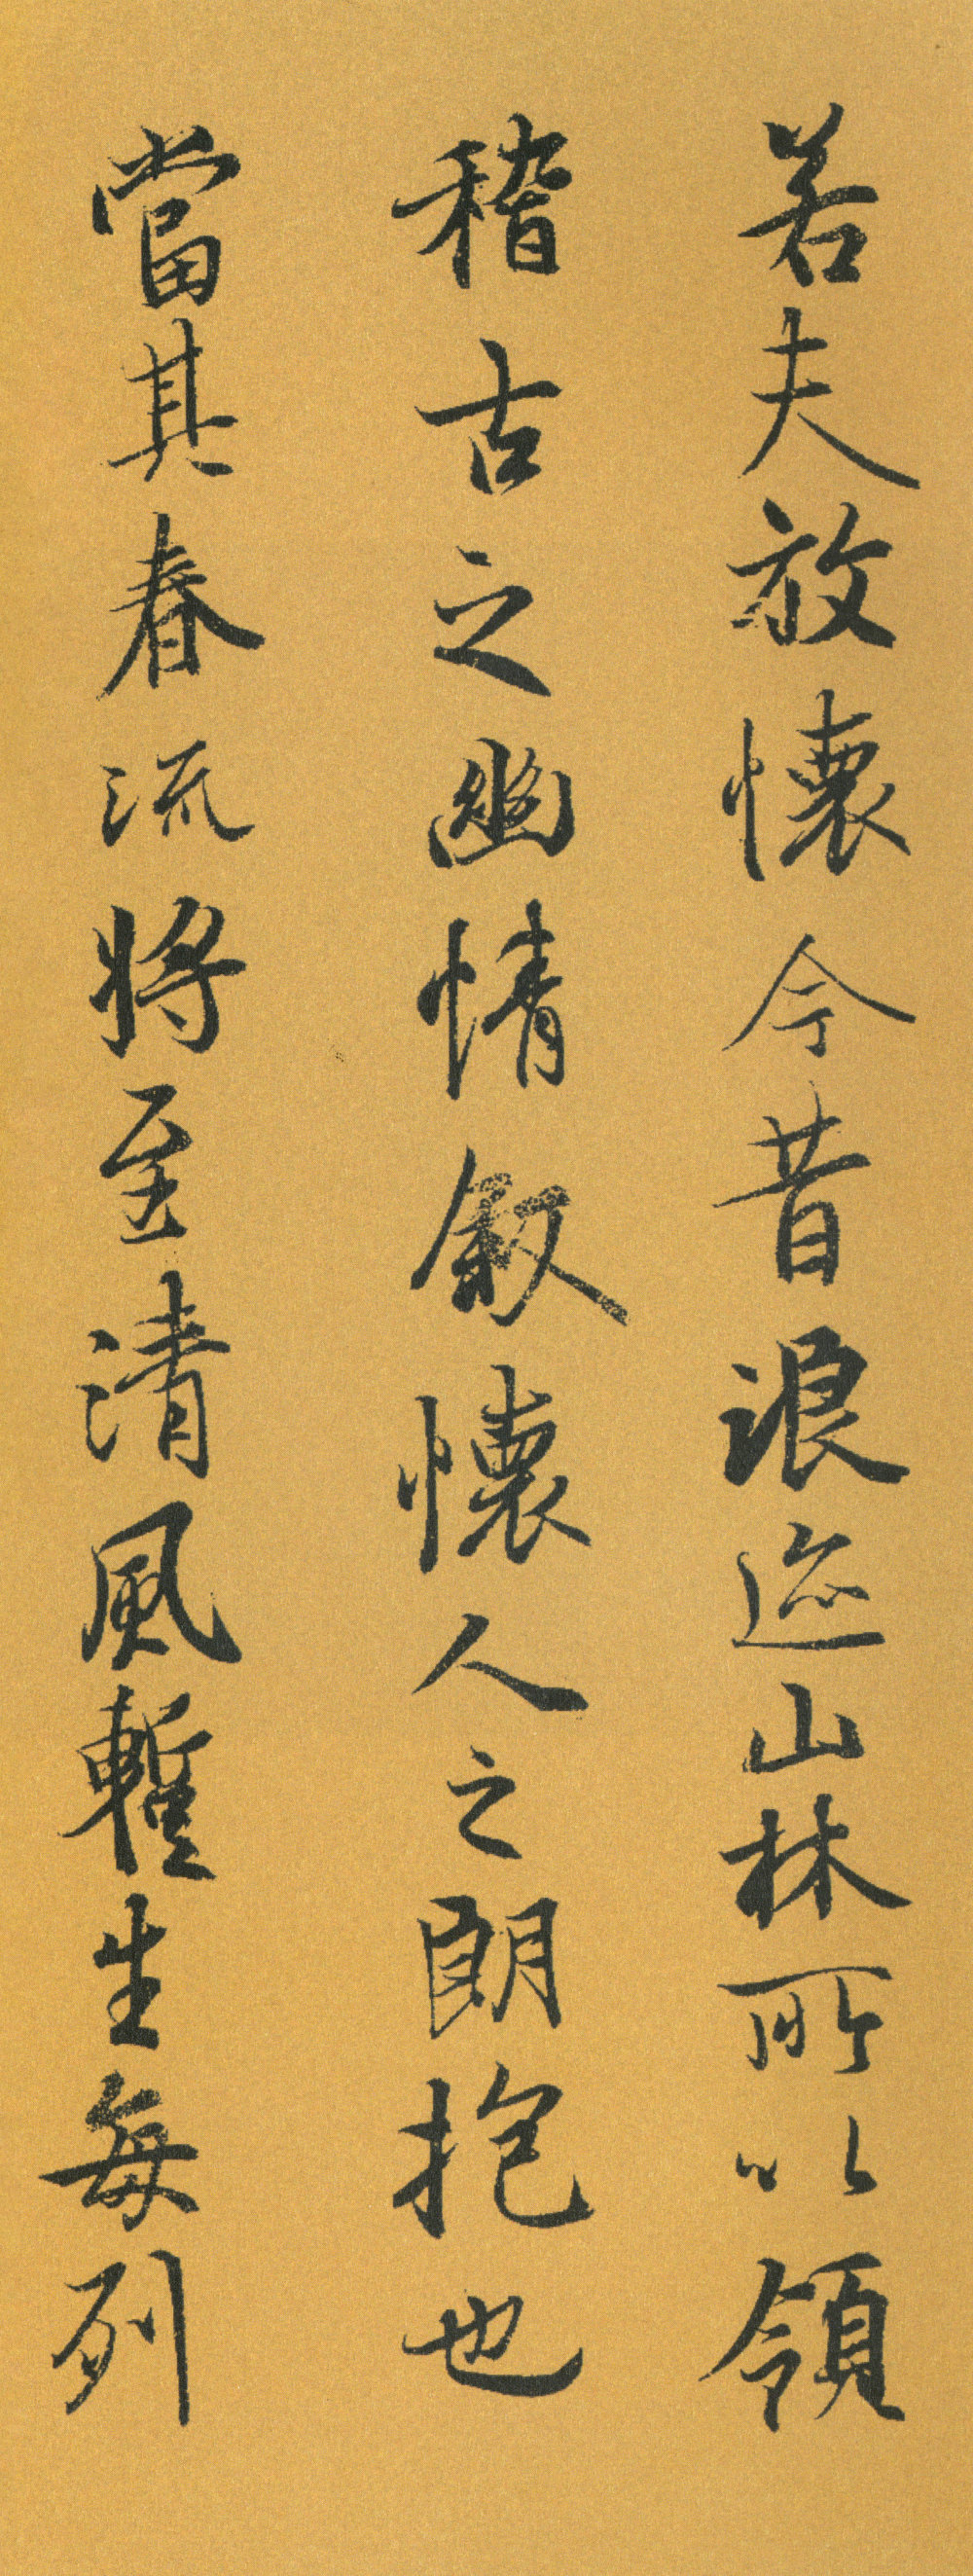 若夫放懷今昔浪迹山林所以領
稽古之幽情叙懷人之朗抱也
當其春流將至清風暫生每列